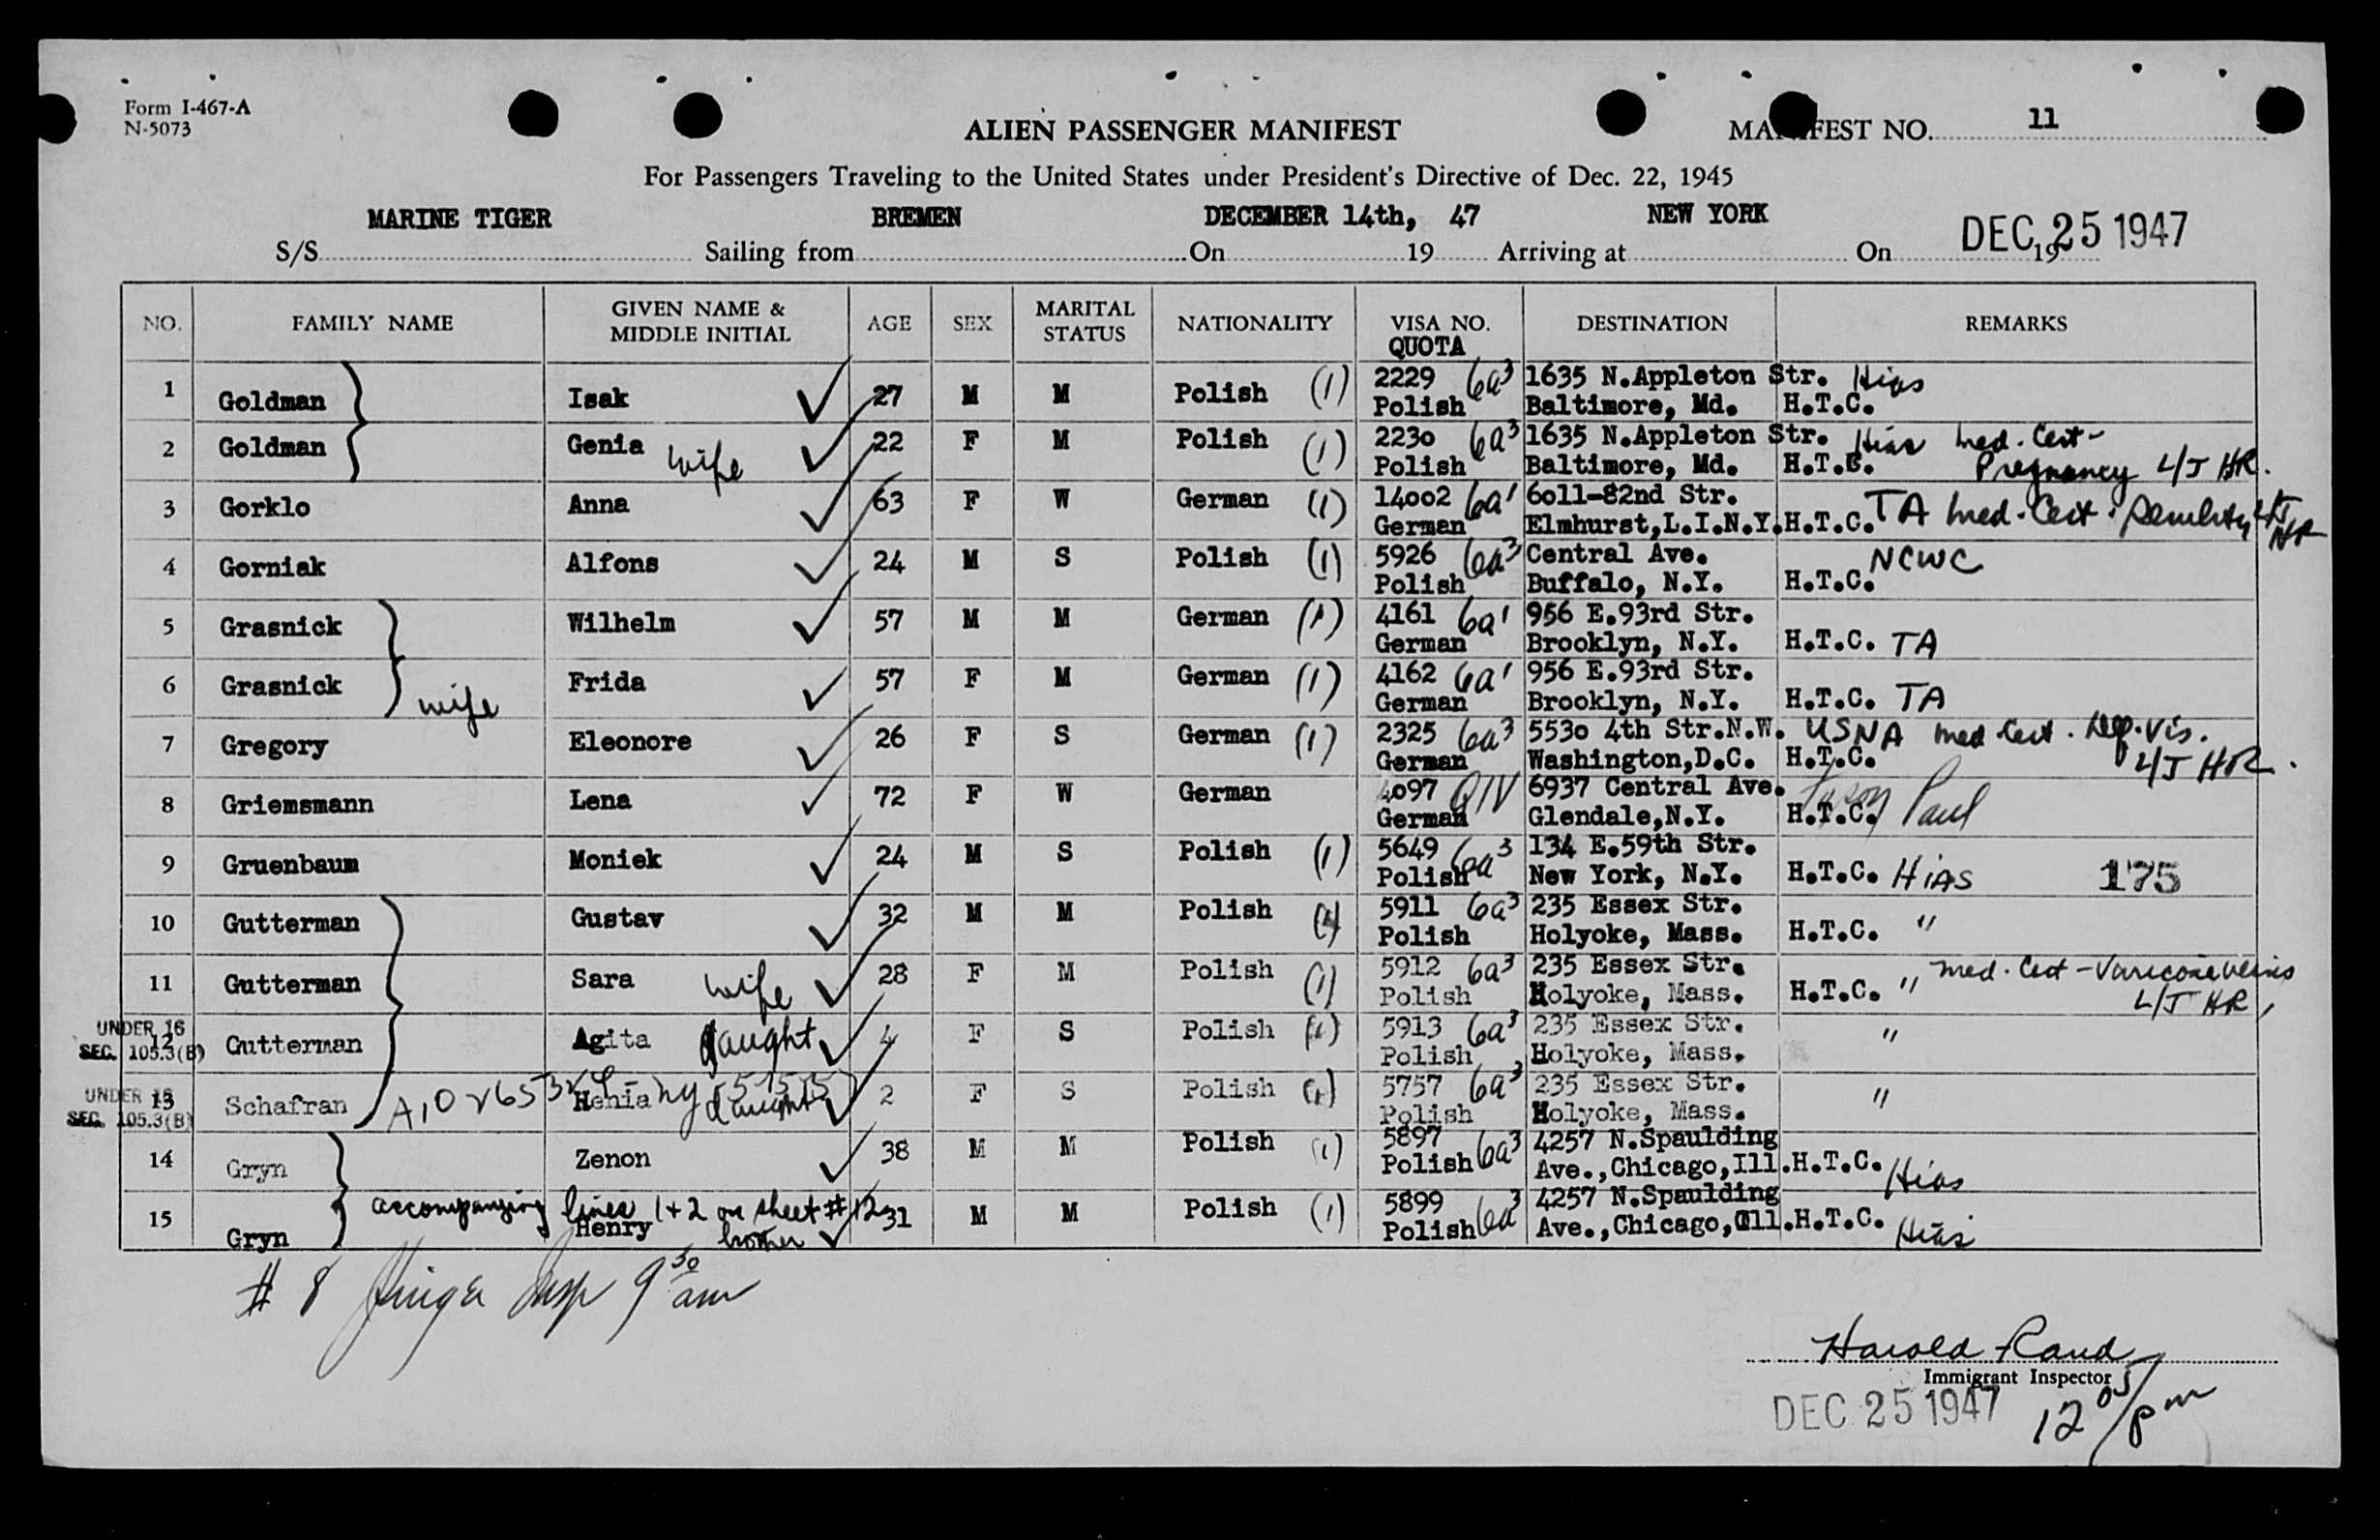 Form I-467-A
N-5073
ALIEN PASSENGER MANIFEST
MANIFEST NO. 11
For Passengers Traveling to the United States under President's Directive of Dec. 22, 1945
MARINE TIGER BREMEN DECEMBER 14th, 47 NEW YORK DEC 25 1947
S/S Sailing from On 19 Arriving at On 19
NO. FAMILY NAME GIVEN NAME & MIDDLE INITIAL AGE SEX MARITAL STATUS NATIONALITY VISA NO. QUOTA DESTINATION REMARKS
1 Goldman Isak 27 M M Polish (1) 2229 6a3 1635 N.Appleton Str. Hias
Polish Baltimore, Md. H.T.C.
2 Goldman Genia wife 22 F M Polish (1) 2230 6a3 1635 N.Appleton Str. Hias med. Cert-
Polish Baltimore, Md. H.T.C. Pregnancy L/J HR.
3 Gorklo Anna 63 F W German (1) 14002 6a1 6011-82nd Str.
German Elmhurst,L.I.N.Y. H.T.C. TA med. Cert. L/J HR
4 Gorniak Alfons 24 M S Polish (1) 5926 6a3 Central Ave. NCWC
Polish Buffalo, N.Y. H.T.C.
5 Grasnick Wilhelm 57 M M German (1) 4161 6a1 956 E.93rd Str.
German Brooklyn, N.Y. H.T.C. TA
6 Grasnick wife Frida 57 F M German (1) 4162 6a1 956 E.93rd Str.
German Brooklyn, N.Y. H.T.C. TA
7 Gregory Eleonore 26 F S German (1) 2325 6a3 5530 4th Str.N.W. USNA med Cert. Vis.
German Washington,D.C. H.T.C. L/J HR.
8 Griemsmann Lena 72 F W German 4097 QIV 6937 Central Ave.
German Glendale,N.Y. H.T.C. Paul
9 Gruenbaum Moniek 24 M S Polish (1) 5649 6a3 134 E.59th Str.
Polish New York, N.Y. H.T.C. HIAS 175
10 Gutterman Gustav 32 M M Polish (1) 5911 6a3 235 Essex Str.
Polish Holyoke, Mass. H.T.C. "
11 Gutterman Sara wife 28 F M Polish (1) 5912 6a3 235 Essex Str. med. Cert - Varicose veins
Polish Holyoke, Mass. H.T.C. " L/J HR,
UNDER 16
SEC. 105.3(B)
12 Gutterman Agita daught 4 F S Polish (1) 5913 6a3 235 Essex Str. "
Polish Holyoke, Mass.
UNDER 16
SEC. 105.3(B)
13 Schafran Henia daught 2 F S Polish (1) 5757 6a3 235 Essex Str. "
Polish Holyoke, Mass.
14 Gryn Zenon 38 M M Polish (1) 5897 6a3 4257 N.Spaulding
Polish Ave.,Chicago,Ill. H.T.C. Hias
accompanying lines 1+2 on sheet #12
15 Gryn Henry brother 31 M M Polish (1) 5899 6a3 4257 N.Spaulding
Polish Ave.,Chicago,Ill. H.T.C. Hias
# 8 Insp 9 30 am
Harold Rand
Immigrant Inspector
DEC 25 1947 12 05/pm